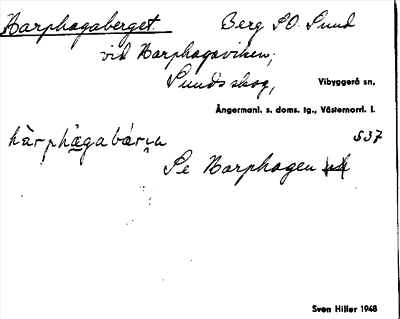 Harphagaberget Berg SO. Sund
vid Harphagaviken,
Sunds skog, Vibyggerå sn,
Ångermanl. s. doms. tg., Västernorrl. l.
S37
Se Harphagen
Sven Hiller 1948